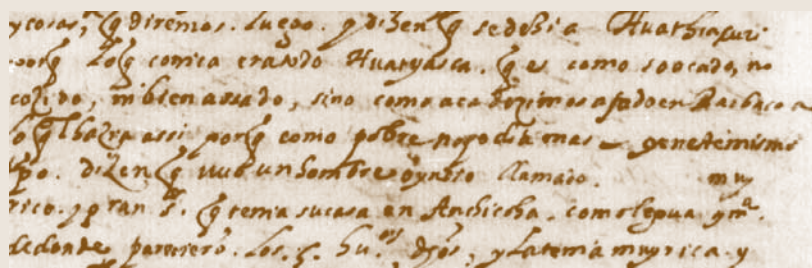 y cosas, q̃ diremos. luego. y dizen q̃ se dezia Huathiacuri
porq̃ lo q̃ comia era todo Huatyasca. q̃ es como soocado, no
cozido, ni bien assado, sino como aca dezimos asado en Barbacoa
lo q̃l hazia assi porq̃ como pobre no podia mas y en este mismo
tp̃o. dizen q̃ uuo un hombre llamado. muy
rico. y gran s.ʳ q̃ tenia su casa en Anchicha. como
de donde partierõ. los. 5. hu.ᵒˢ dhõs, y la tenia muy rica. y